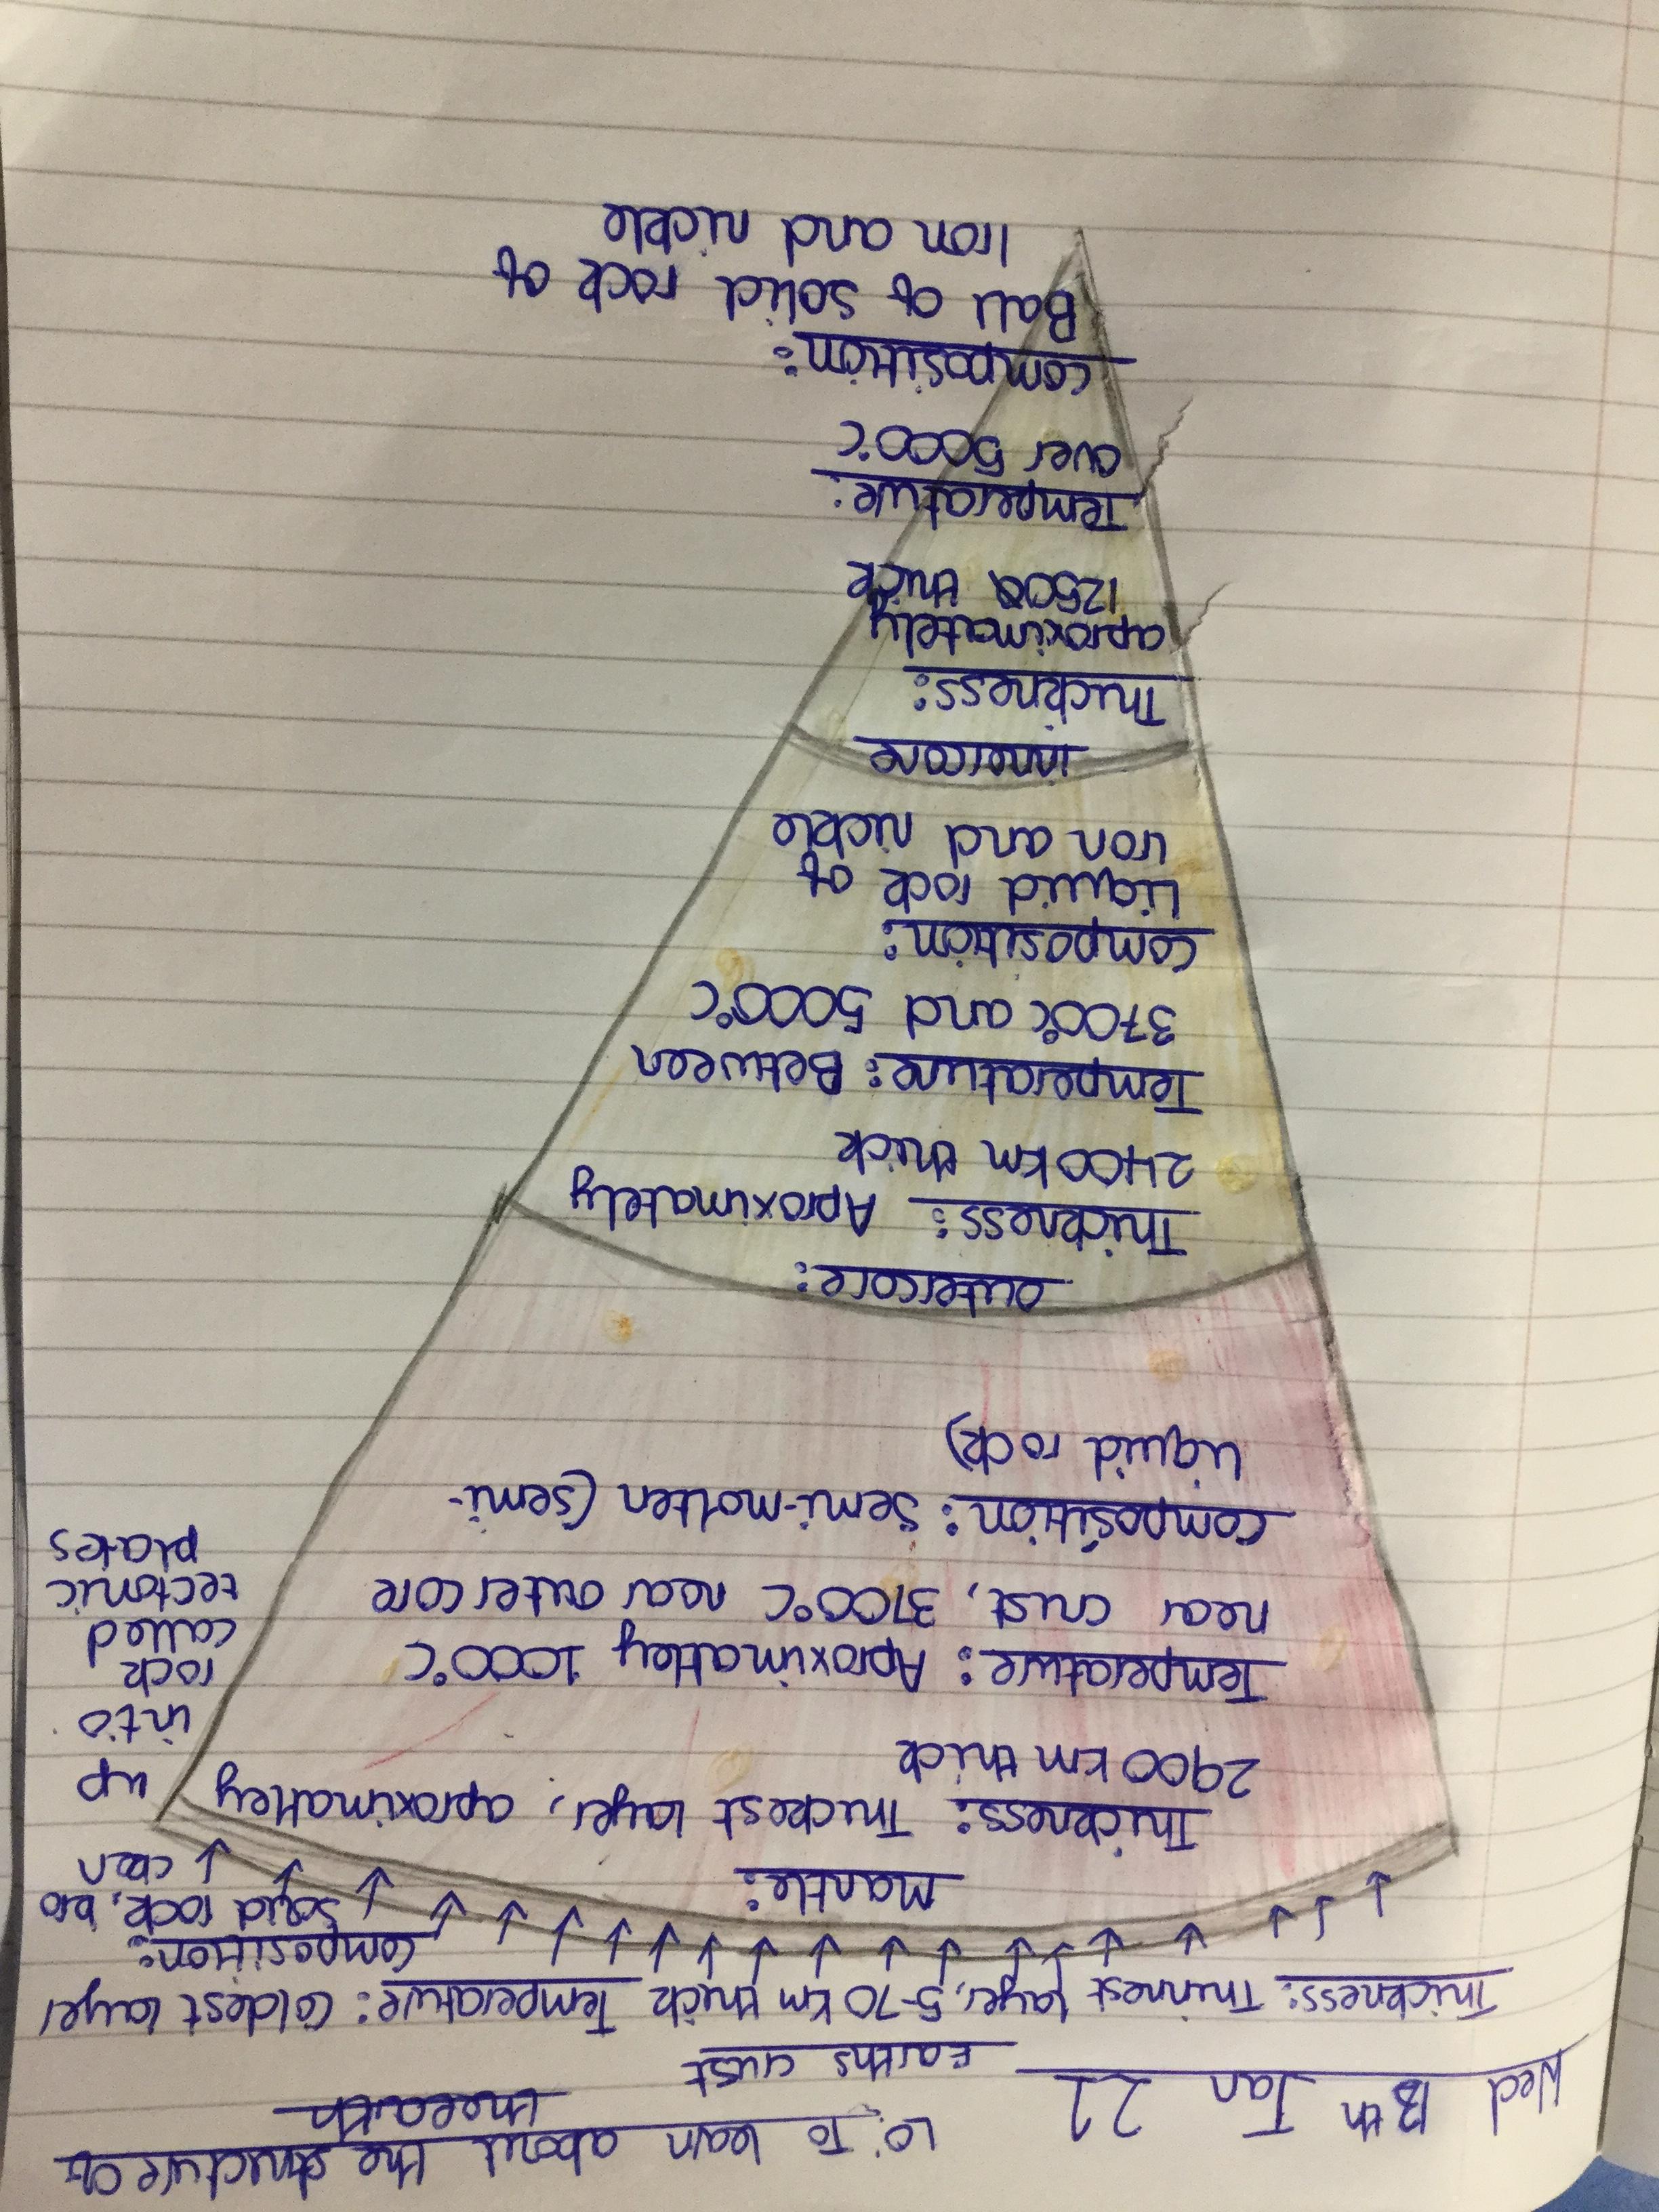 Wed 13th Jan 21
L.O: To learn about the structure of
the earth
Earths crust
Thickness: Thinnest layer, 5-70 km thick Temperature: Coldest layer
Composition:
Solid rock, bro
cken
up
into
rock
called
tectonic
plates
Mantle:
Thickness: Thickest layer, aproximatley
2900 km thick
Temperature: Aproximatley 1000°C
near crust, 3700°C near outercore
Composition: Semi-molten (semi-
liquid rock)
outercore:
Thickness: Aproximately
2400 km thick
Temperature: Between
3700°C and 5000°C
Composition:
Liquid rock of
iron and nickle
innercore
Thickness:
aproximately
1250 thick
Temperature:
over 5000°C
Composition:
Ball of solid rock of
Iron and nickle